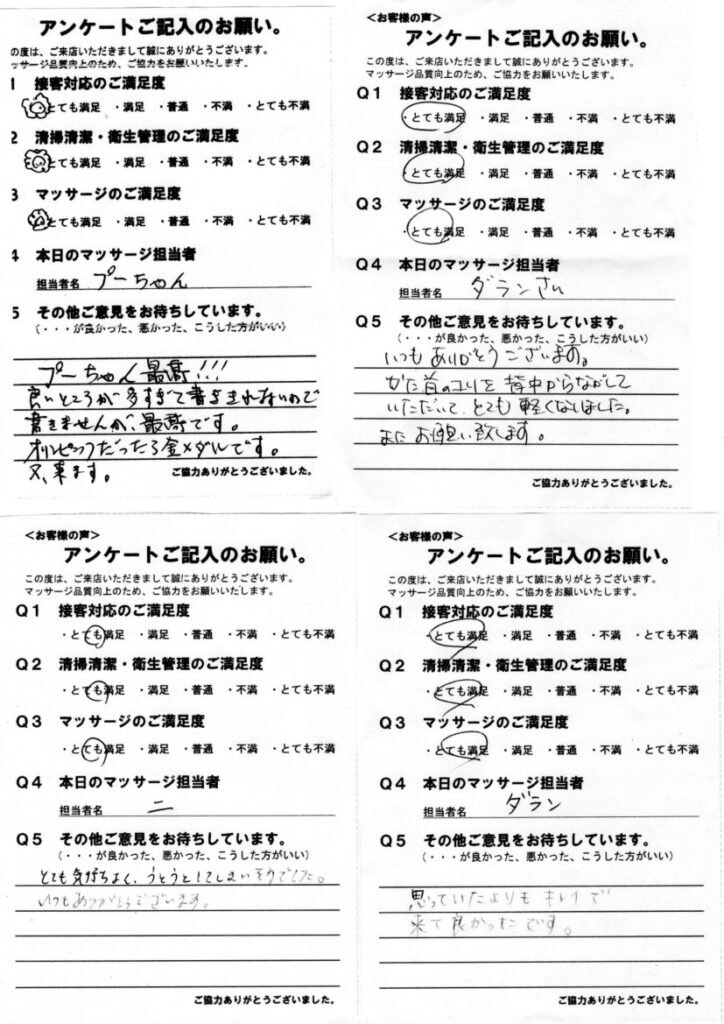 アンケートご記入のお願い。
の度は、ご来店いただきまして誠にありがとうございます。
ッサージ品質向上のため、ご協力をお願いいたします。
1 接客対応のご満足度
とても満足 ・満足 ・普通 ・不満 ・とても不満
2 清掃清潔・衛生管理のご満足度
とても満足 ・満足 ・普通 ・不満 ・とても不満
3 マッサージのご満足度
とても満足 ・満足 ・普通 ・不満 ・とても不満
4 本日のマッサージ担当者
担当者名 プーちゃん
5 その他ご意見をお待ちしています。
(・・・が良かった、悪かった、こうした方がいい)
プーちゃん最高!!!
良いところが多すぎて書ききれないので
書きませんが、最高です。
オリンピックだったら金メダルです。
又、来ます。
ご協力ありがとうございました。
<お客様の声>
アンケートご記入のお願い。
この度は、ご来店いただきまして誠にありがとうございます。
マッサージ品質向上のため、ご協力をお願いいたします。
Q1 接客対応のご満足度
・とても満足 ・満足 ・普通 ・不満 ・とても不満
Q2 清掃清潔・衛生管理のご満足度
・とても満足 ・満足 ・普通 ・不満 ・とても不満
Q3 マッサージのご満足度
・とても満足 ・満足 ・普通 ・不満 ・とても不満
Q4 本日のマッサージ担当者
担当者名 ダランさん
Q5 その他ご意見をお待ちしています。
(・・・が良かった、悪かった、こうした方がいい)
いつもありがとうございます。
かた首のコリを背中からながして
いただいて、とても軽くなりました。
またお願い致します。
ご協力ありがとうございました。
<お客様の声>
アンケートご記入のお願い。
この度は、ご来店いただきまして誠にありがとうございます。
マッサージ品質向上のため、ご協力をお願いいたします。
Q1 接客対応のご満足度
・とても満足 ・満足 ・普通 ・不満 ・とても不満
Q2 清掃清潔・衛生管理のご満足度
・とても満足 ・満足 ・普通 ・不満 ・とても不満
Q3 マッサージのご満足度
・とても満足 ・満足 ・普通 ・不満 ・とても不満
Q4 本日のマッサージ担当者
担当者名 ニ
Q5 その他ご意見をお待ちしています。
(・・・が良かった、悪かった、こうした方がいい)
とても気持ちよく、うとうとしてしまいそうでした。
いつもありがとうございます。
ご協力ありがとうございました。
<お客様の声>
アンケートご記入のお願い。
この度は、ご来店いただきまして誠にありがとうございます。
マッサージ品質向上のため、ご協力をお願いいたします。
Q1 接客対応のご満足度
・とても満足 ・満足 ・普通 ・不満 ・とても不満
Q2 清掃清潔・衛生管理のご満足度
・とても満足 ・満足 ・普通 ・不満 ・とても不満
Q3 マッサージのご満足度
・とても満足 ・満足 ・普通 ・不満 ・とても不満
Q4 本日のマッサージ担当者
担当者名 ダラン
Q5 その他ご意見をお待ちしています。
(・・・が良かった、悪かった、こうした方がいい)
思っていたよりもキレイで
来て良かったです。
ご協力ありがとうございました。